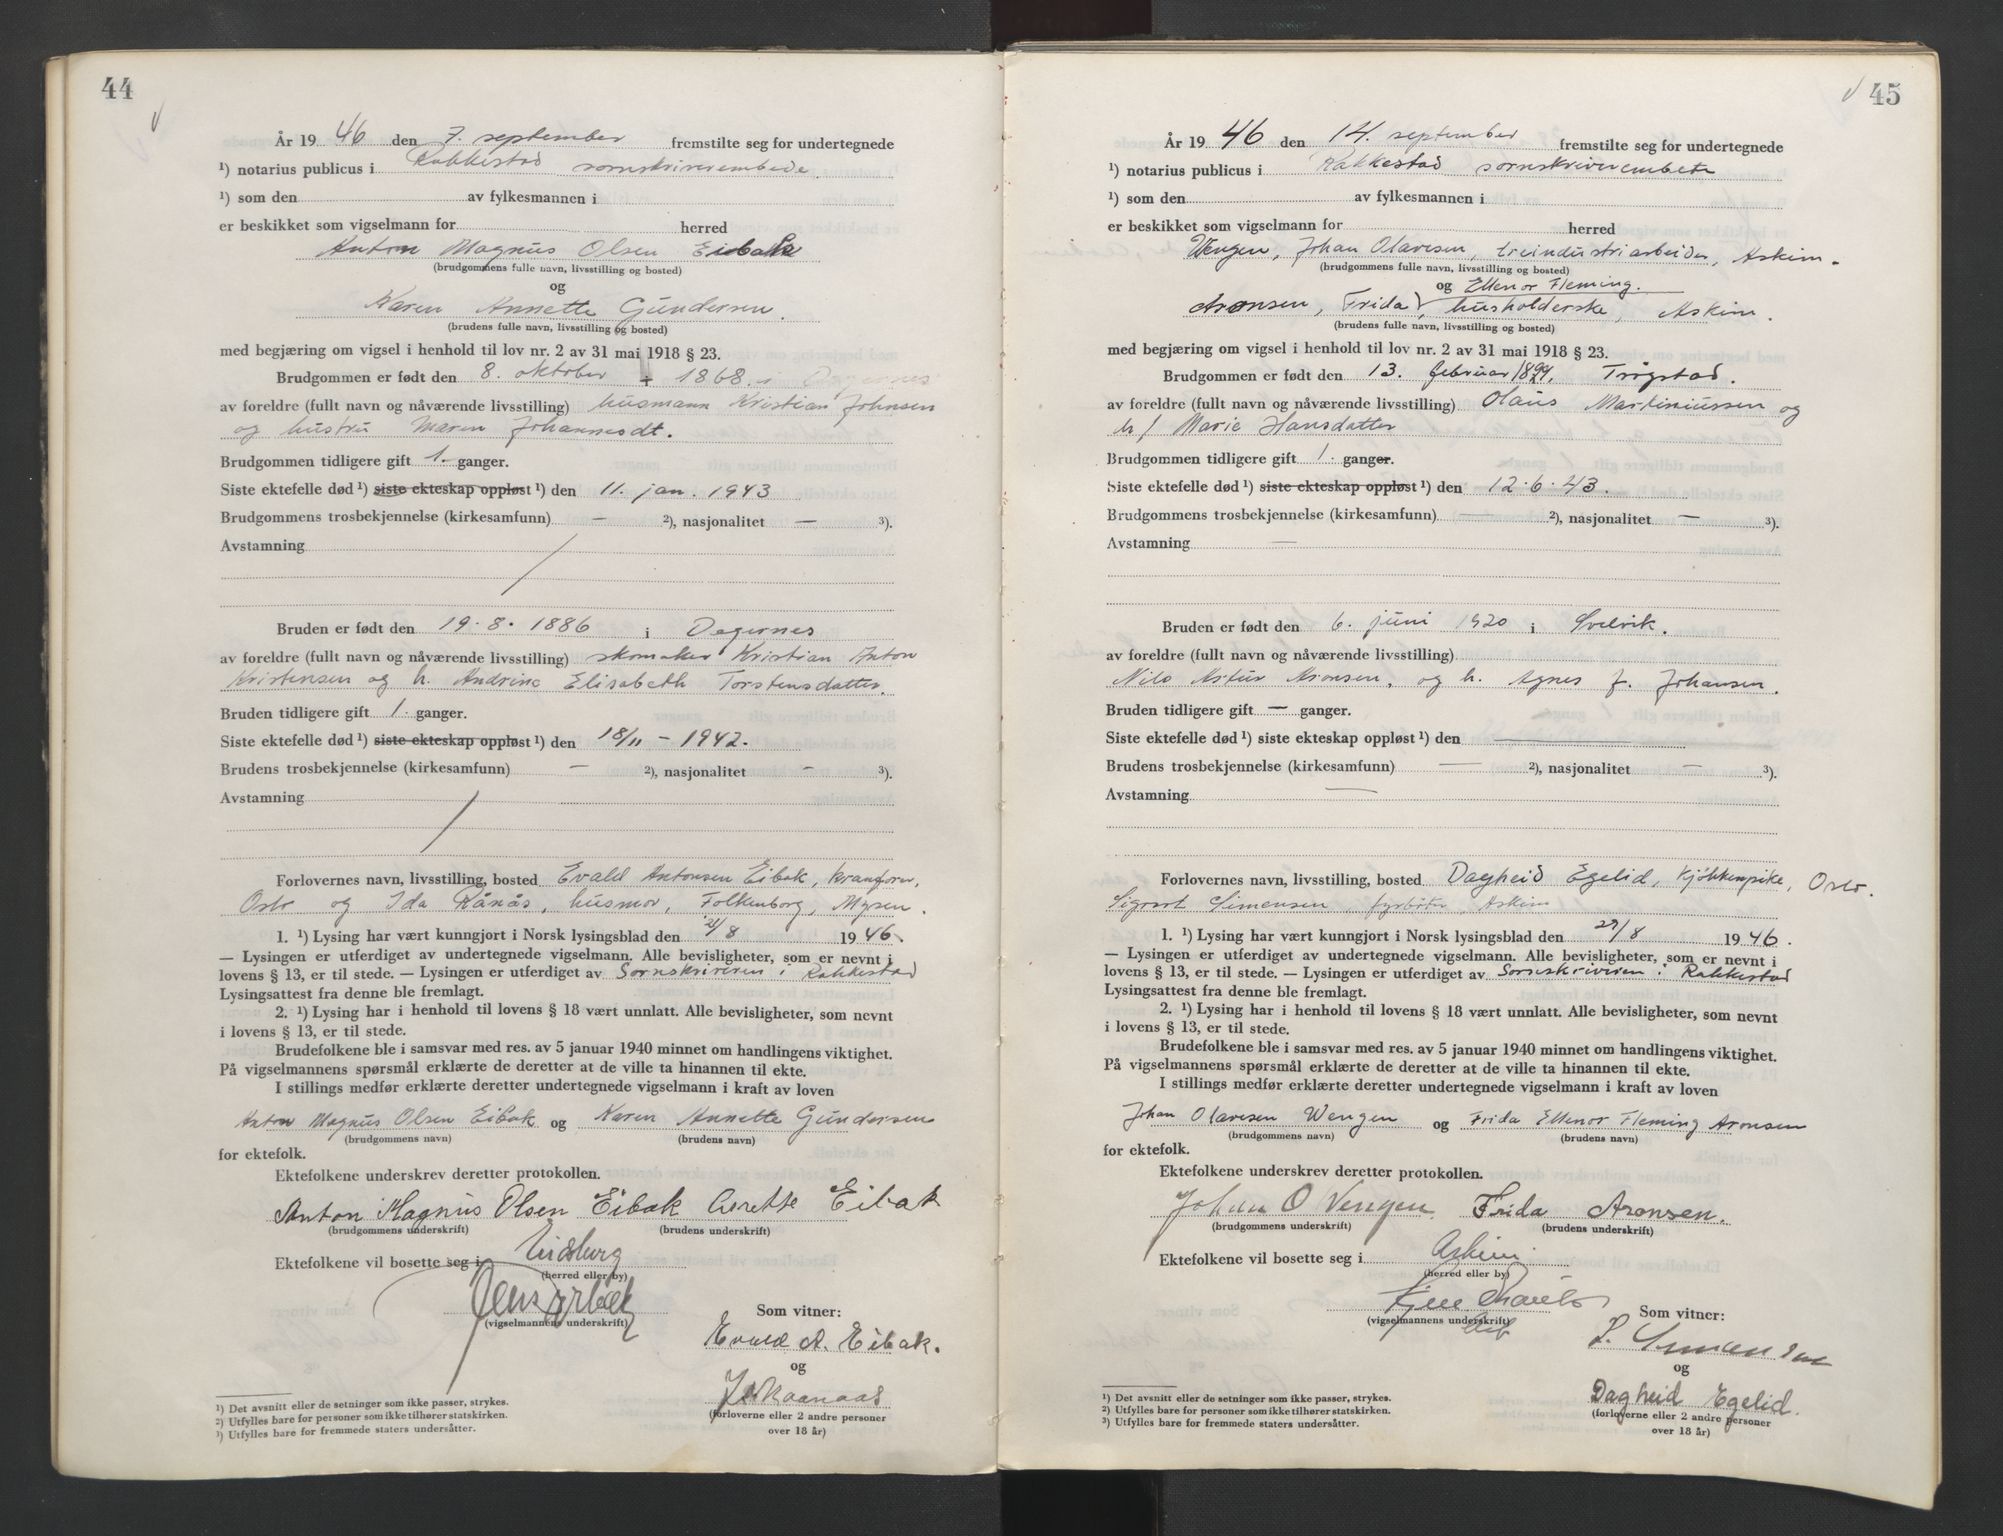 44
År 19 46 den 7. september fremstilte seg for undertegnede
¹) notarius publicus i Rakkestad sorenskriverembede.
¹) som den av fylkesmannen i
er beskikket som vigselmann for herred
Anton Magnus Olsen Eibak
(brudgommens fulle navn, livsstilling og bosted)
og
Karen Annette Gundersen.
(brudens fulle navn, livsstilling og bosted)
med begjæring om vigsel i henhold til lov nr. 2 av 31 mai 1918 § 23.
Brudgommen er født den 8. oktober 1868. i Degernes
av foreldre (fullt navn og nåværende livsstilling) husmann Kristian Johnsen
og hustru Maren Johannesdt.
Brudgommen tidligere gift 1. ganger.
Siste ektefelle død ¹) siste ekteskap oppløst ¹) den 11. jan. 1943
Brudgommens trosbekjennelse (kirkesamfunn) — ²), nasjonalitet — ³).
Avstamning
Bruden er født den 19.8.1886 i Degernes
av foreldre (fullt navn og nåværende livsstilling) skomaker Kristian Anton
Kristensen og h. Andrine Elisabeth Torstensdatter.
Bruden tidligere gift 1. ganger.
Siste ektefelle død ¹) siste ekteskap oppløst ¹) den 18/11 - 1942.
Brudens trosbekjennelse (kirkesamfunn) — ²), nasjonalitet - ³).
Avstamning
Forlovernes navn, livsstilling, bosted Evald Antonsen Eibak, kranfører,
Oslo og Ida Kånås, husmor, Folkenborg, Mysen.
1. ¹) Lysing har vært kunngjort i Norsk lysingsblad den 21/8 19 46.
— Lysingen er utferdiget av undertegnede vigselmann. Alle bevisligheter, som er nevnt i
lovens § 13, er til stede. — Lysingen er utferdiget av Sorenskriveren i Rakkestad
Lysingsattest fra denne ble fremlagt.
2. ¹) Lysing har i henhold til lovens § 18 vært unnlatt. Alle bevisligheter, som nevnt
i lovens § 13, er til stede.
Brudefolkene ble i samsvar med res. av 5 januar 1940 minnet om handlingens viktighet.
På vigselmannens spørsmål erklærte de deretter at de ville ta hinannen til ekte.
I stillings medfør erklærte deretter undertegnede vigselmann i kraft av loven
Anton Magnus Olsen Eibak og Karen Annette Gundersen
(brudgommens navn) (brudens navn)
for ektefolk.
Ektefolkene underskrev deretter protokollen.
Anton Magnus Olsen Eibak Anette Eibak
(brudgommens underskrift) (brudens underskrift)
Ektefolkene vil bosette seg i Eidsberg
(herred eller by)
(vigselmannens underskrift)
Som vitner:
Evald A. Eibak.
og
(forloverne eller 2 andre personer
over 18 år)
¹) Det avsnitt eller de setninger som ikke passer, strykes.
²) Utfylles bare for personer som ikke tilhører statskirken.
³) Utfylles bare for fremmede staters undersåtter.
45
År 19 46 den 14. september fremstilte seg for undertegnede
¹) notarius publicus i Rakkestad sorenskriverembete
¹) som den av fylkesmannen i
er beskikket som vigselmann for herred
Wengen, Johan Olavesen, treindustriarbeider, Askim.
(brudgommens fulle navn, livsstilling og bosted)
og Ellenor Fleming.
Aronsen, Frida, husholderske, Askim.
(brudens fulle navn, livsstilling og bosted)
med begjæring om vigsel i henhold til lov nr. 2 av 31 mai 1918 § 23.
Brudgommen er født den 13. februar 1899. Trøgstad.
av foreldre (fullt navn og nåværende livsstilling) Olaus Martiniussen og
h/ Marie Hansdatter
Brudgommen tidligere gift 1. ganger.
Siste ektefelle død ¹) siste ekteskap oppløst ¹) den 12.6.43.
Brudgommens trosbekjennelse (kirkesamfunn) — ²), nasjonalitet — ³).
Avstamning —
Bruden er født den 6. juni 1920 i Svelvik.
av foreldre (fullt navn og nåværende livsstilling)
Nils Artur Aronsen, og h. Agnes f. Johansen.
Bruden tidligere gift — ganger.
Siste ektefelle død ¹) siste ekteskap oppløst ¹) den —
Brudens trosbekjennelse (kirkesamfunn) — ²), nasjonalitet — ³).
Avstamning —
Forlovernes navn, livsstilling, bosted Dagheid Egelid, kjøkkenpike, Oslo.
Sigvart Simensen, fyrbøter, Askim
1. ¹) Lysing har vært kunngjort i Norsk lysingsblad den 29/8 19 46.
— Lysingen er utferdiget av undertegnede vigselmann. Alle bevisligheter, som er nevnt i
lovens § 13, er til stede. — Lysingen er utferdiget av Sorenskriveren i Rakkestad
Lysingsattest fra denne ble fremlagt.
2. ¹) Lysing har i henhold til lovens § 18 vært unnlatt. Alle bevisligheter, som nevnt
i lovens § 13, er til stede.
Brudefolkene ble i samsvar med res. av 5 januar 1940 minnet om handlingens viktighet.
På vigselmannens spørsmål erklærte de deretter at de ville ta hinannen til ekte.
I stillings medfør erklærte deretter undertegnede vigselmann i kraft av loven
Johan Olavesen Wengen og Frida Ellenor Fleming Aronsen
(brudgommens navn) (brudens navn)
for ektefolk.
Ektefolkene underskrev deretter protokollen.
Johan O Vengen. Frida Aronsen.
(brudgommens underskrift) (brudens underskrift)
Ektefolkene vil bosette seg i Askim
(herred eller by)
(vigselmannens underskrift)
Som vitner:
S. Simensen
og
Dagheid Egelid.
(forloverne eller 2 andre personer
over 18 år)
¹) Det avsnitt eller de setninger som ikke passer, strykes.
²) Utfylles bare for personer som ikke tilhører statskirken.
³) Utfylles bare for fremmede staters undersåtter.